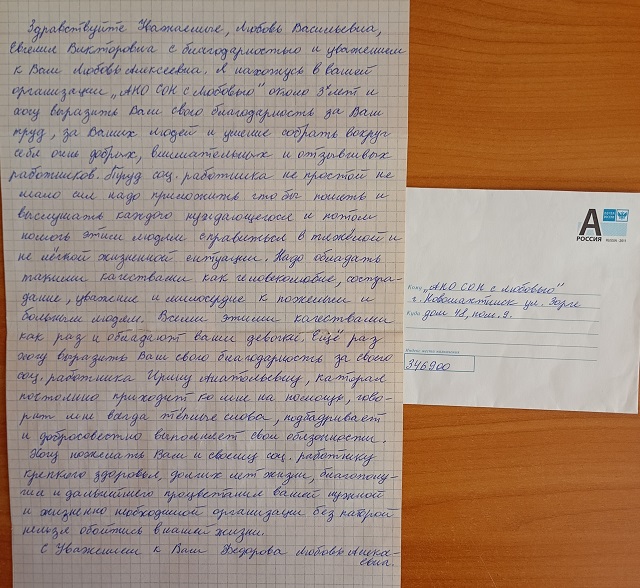 Здравствуйте Уважаемые, Любовь Васильевна,
Евгения Викторовна с благодарностью и уважением
к Вам Любовь Алексеевна. Я нахожусь в вашей
организации „АНО СОН с Любовью" около 3х лет и
хочу выразить Вам свою благодарность за Ваш
труд, за Ваших людей и умение собрать вокруг
себя очень добрых, внимательных и отзывчивых
работников. Труд соц. работника не простой не
мало сил надо приложить что бы понять и
выслушать каждого нуждающегося и потом
помочь этим людям справиться в тяжёлой и
не лёгкой жизненной ситуации. Надо обладать
такими качествами как человеколюбие, состра-
дание, уважение и милосердие к пожилым и
больным людям. Всеми этими качествами
как раз и обладают ваши девочки. Ещё раз
хочу выразить Вам свою благодарность за своего
соц. работника Ирину Анатольевну, каторая
постоянно приходит ко мне на помощь, гово-
рит мне всегда тёплые слова, подбадривает
и добросовестно выполняет свои обязанности.
Хочу пожелать Вам и своему соц. работнику
крепкого здоровья, долгих лет жизни, благополу-
чия и дальнейшего процветания вашей нужной
и жизненно необходимой организации без каторой
нельзя обойтись в нашей жизни.
С Уважением к Вам Федорова Любовь Алексе-
евна.
А
РОССИЯ
Кому „АНО СОН с Любовью"
г. Новошахтинск ул. Зорге
Куда дом 48, пом. 2.
346900